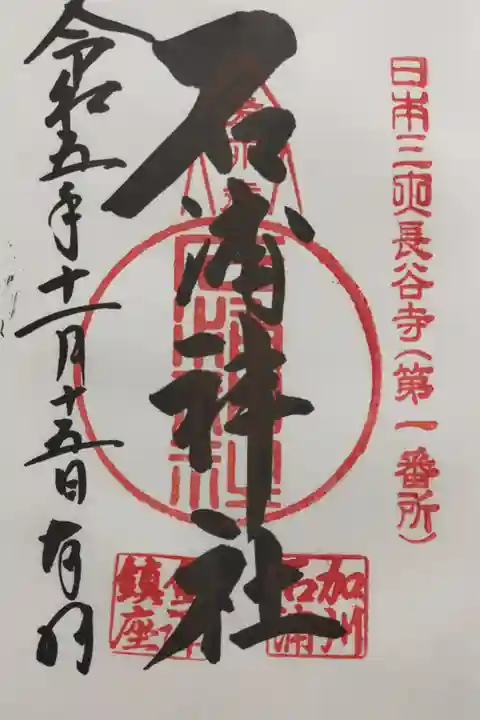 日本三長谷寺(第一番所)
石浦神社
加州
石浦
鎮座
令和五年十一月十五日